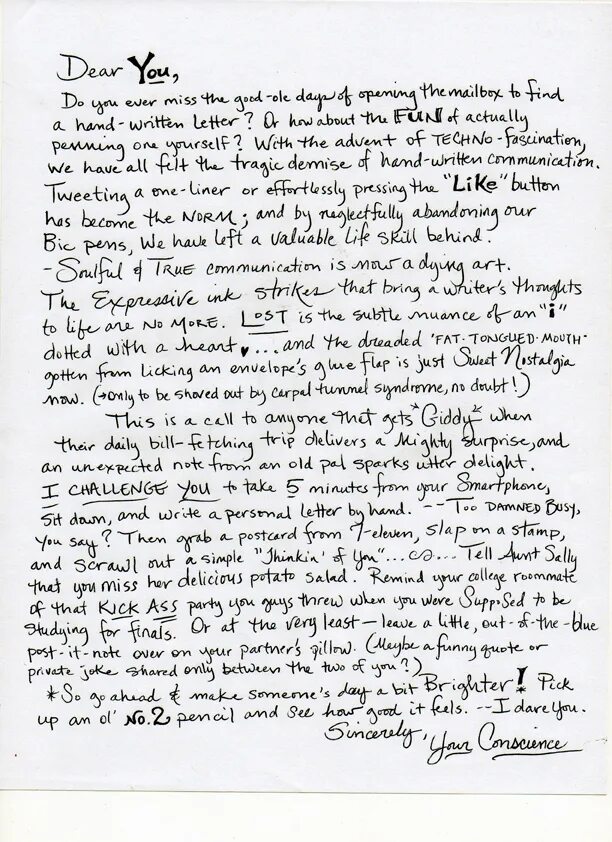 Dear You,
Do you ever miss the good-ole days of opening the mailbox to find
a hand-written letter? Or how about the FUN of actually
penning one yourself? With the advent of TECHNO-fascination,
we have all felt the tragic demise of hand-written communication.
Tweeting a one-liner or effortlessly pressing the "Like" button
has become the NORM; and by neglectfully abandoning our
Bic pens, we have left a valuable life skill behind.
-Soulful & TRUE communication is now a dying art.
The Expressive ink strikes that bring a writer's thoughts
to life are NO MORE. LOST is the subtle nuance of an "i"
dotted with a heart ♥... and the dreaded 'FAT-TONGUED-MOUTH'
gotten from licking an envelope's glue flap is just Sweet Nostalgia
now. (→Only to be shoved out by carpal tunnel syndrome, no doubt!)
This is a call to anyone that gets "Giddy" when
their daily bill-fetching trip delivers a Mighty surprise, and
an unexpected note from an old pal sparks utter delight.
I CHALLENGE YOU to take 5 minutes from your Smartphone,
sit down, and write a personal letter by hand. --Too DAMNED BUSY,
you say? Then grab a postcard from 7-eleven, slap on a stamp,
and scrawl out a simple "Thinkin' of You"... ... Tell Aunt Sally
that you miss her delicious potato salad. Remind your college roommate
of that KICK ASS party you guys threw when you were Supposed to be
studying for finals. Or at the very least—leave a little, out-of-the-blue
post-it-note over on your partner's pillow. (Maybe a funny quote or
private joke shared only between the two of you?)
*So go ahead & make someone's day a bit Brighter! Pick
up an ol' No.2 pencil and see how good it feels. --I dare you.
Sincerely,
Your Conscience